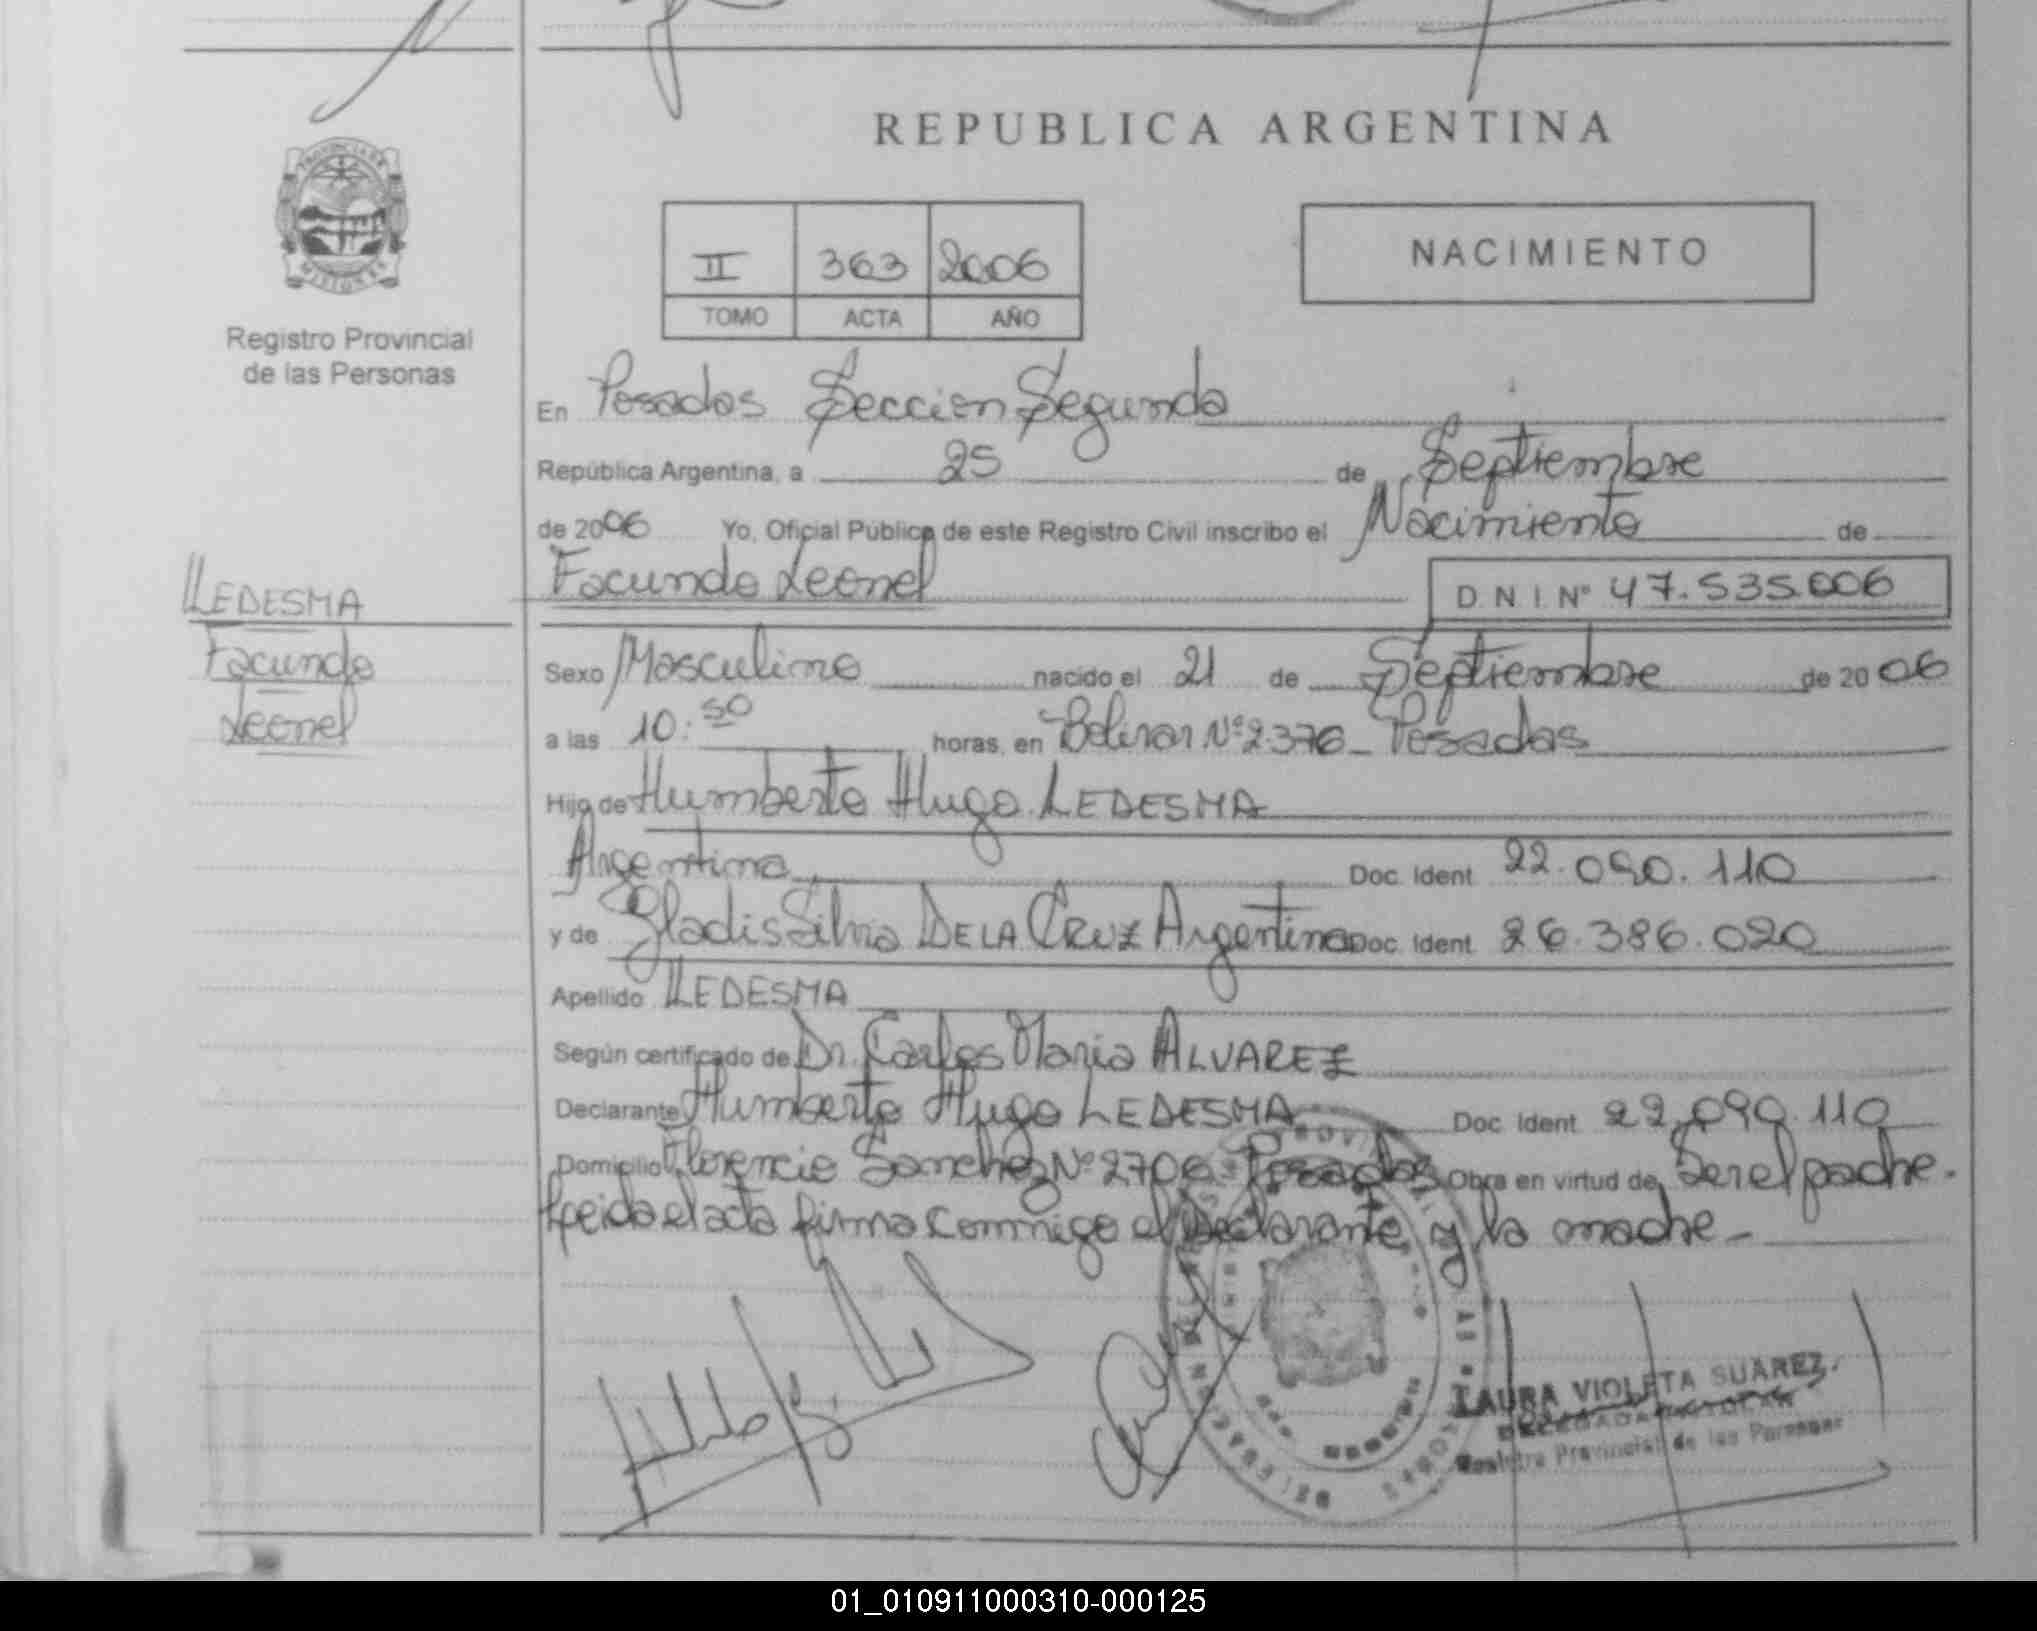 REPUBLICA ARGENTINA
PROVINCIA DE
MISIONES
Registro Provincial
de las Personas
II 363 2006
TOMO ACTA AÑO
NACIMIENTO
En Posadas Seccion Segunda
República Argentina, a 25 de Septiembre
de 2006 Yo, Oficial Público de este Registro Civil inscribo el Nacimiento de
Facundo Leonel D.N.I. Nº 47.535.006
LEDESMA
Facundo
Leonel
Sexo Masculino nacido el 21 de Septiembre de 2006
a las 10:50 horas, en Bolivar Nº 2.376 _ Posadas
Hijo de Humberto Hugo LEDESMA
Argentina Doc. Ident. 22.090.110
y de Gladis Silvia DE LA CRUZ Argentina Doc. Ident. 26.386.020
Apellido LEDESMA
Según certificado de Dr. Carlos Maria ALVAREZ
Declarante Humberto Hugo LEDESMA Doc. Ident. 22.090.110
Domicilio Florencio Sanchez Nº 2706 Posadas Obra en virtud de Ser el padre.
Leida el acta firma conmigo el Declarante y la madre _
LAURA VIOLETA SUAREZ
Registro Provincial de las Personas
01_010911000310-000125